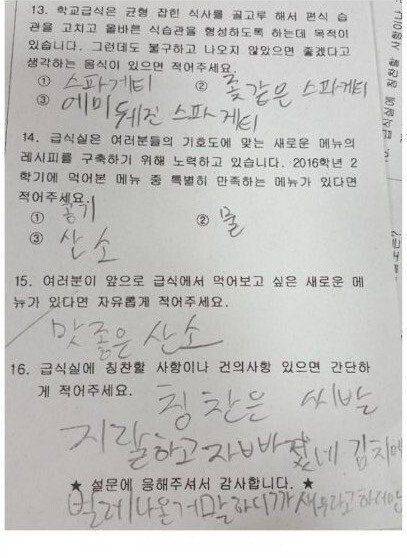 13. 학교급식은 균형 잡힌 식사를 골고루 해서 편식 습
관을 고치고 올바른 식습관을 형성하도록 하는데 목적이
있습니다. 그런데도 불구하고 나오지 않았으면 좋겠다고
생각하는 음식이 있으면 적어주세요.
① 스파게티 ② 좆같은 스파게티
③ 에미 뒈진 스파게티
14. 급식실은 여러분들의 기호도에 맞는 새로운 메뉴의
레시피를 구축하기 위해 노력하고 있습니다. 2016학년 2
학기에 먹어본 메뉴 중 특별히 만족하는 메뉴가 있다면
적어주세요.
① 공기 ② 물
③ 산소
15. 여러분이 앞으로 급식에서 먹어보고 싶은 새로운 메
뉴가 있다면 자유롭게 적어주세요.
맛좋은 산소
16. 급식실에 칭찬할 사항이나 건의사항 있으면 간단하
게 적어주세요.
칭찬은 씨발
지랄하고 자빠졌네 김치에
★ 설문에 응해주셔서 감사합니다. ★
벌레나온거 말하니까 새우라고 하더만